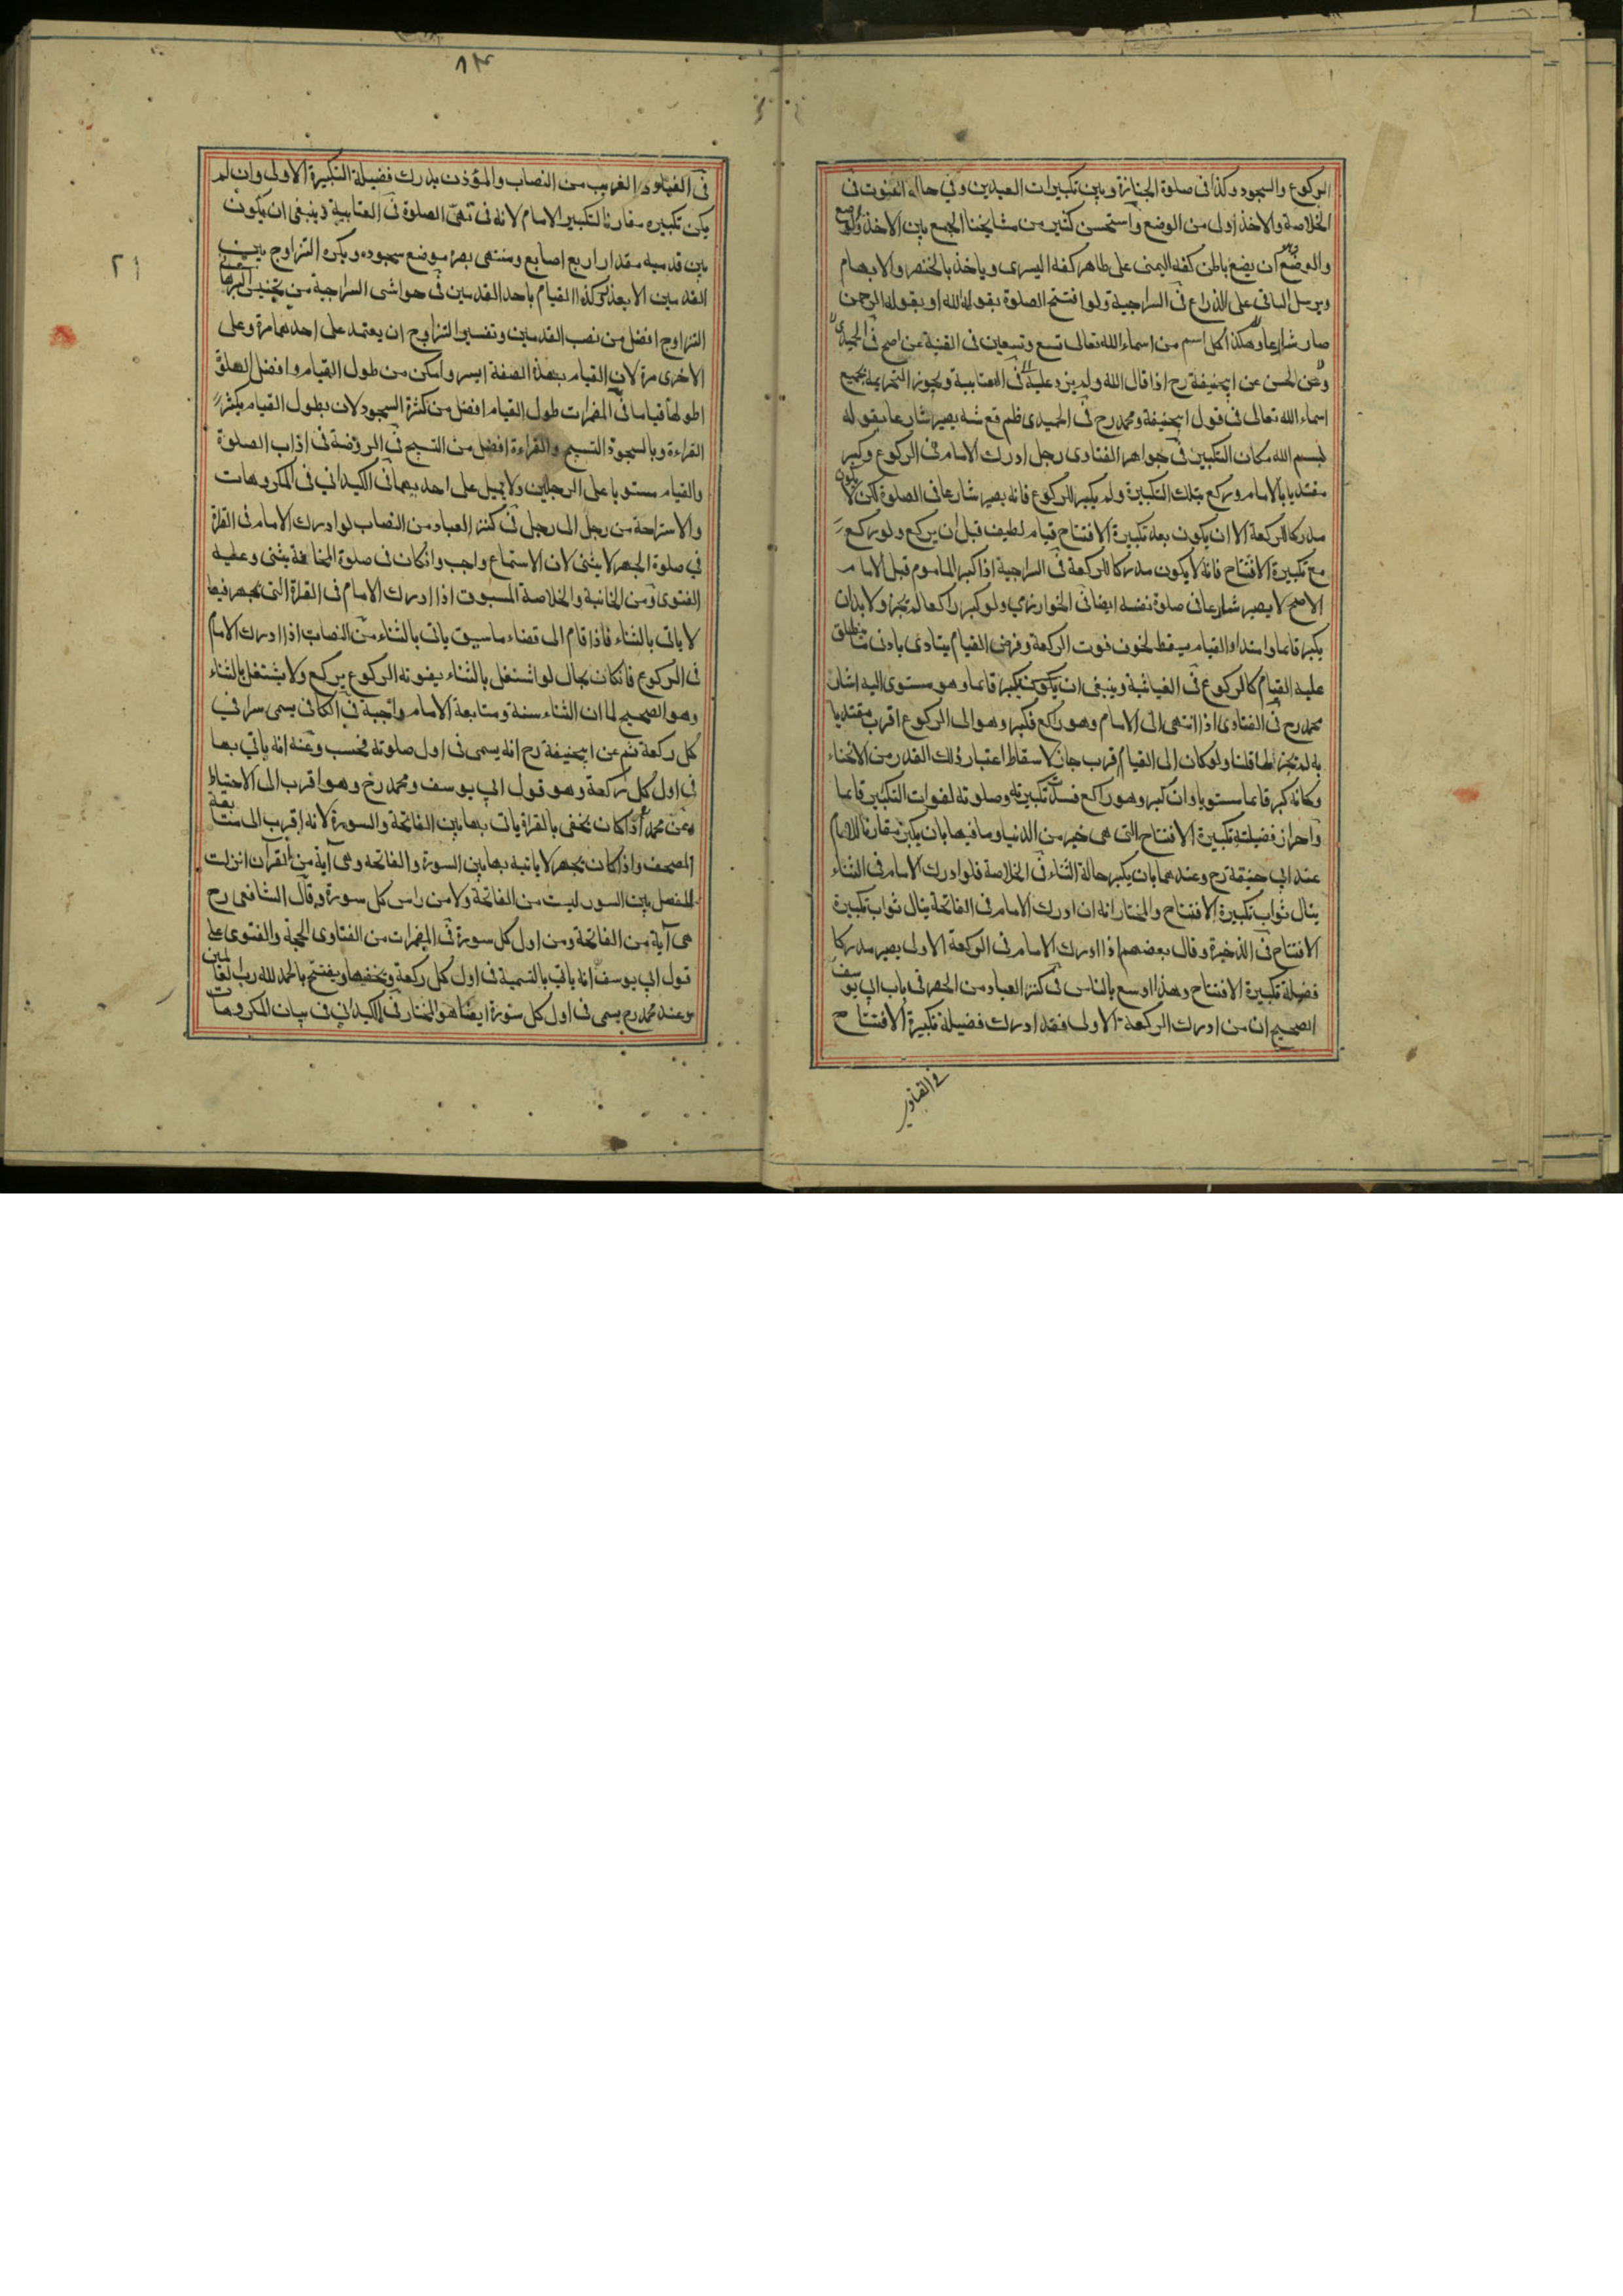 الركوع والسجود وكذا فى صلوة الجنازة وبين تكبيرات العيدين وفي حالة القنوت فى
الخلاصة والاخذ اولى من الوضع واستحسن كثير من مشايخنا الجمع بين الاخذ والوضع
والوضع ان يضع باطن كفه اليمنى على ظاهر كفه اليسرى وياخذ بالخنصر والابهام
ويرسل الباقى على الذراع فى السراجية ولو افتتح الصلوة بقوله الله او بقوله الرحمن
صار شارعا وهكذا كل اسم من اسماء الله تعالى تسع وتسعين فى القنية عن اصح فى الحميدى
وعن الحسن عن ابيحنيفة رح اذا قال الله ولم يزد عليه فى العتابية ويجوز التحريمة بجميع
اسماء الله تعالى فى قول ابيحنيفة ومحمد رح فى الحميدى يصير شارعا بقوله
بسم الله مكان التكبير فى جواهر الفتاوى رجل ادرك الامام فى الركوع وكبر
مقتديا بالامام وركع بتلك التكبيرة ولم يكبر للركوع فانه يصير شارعا فى الصلوة لكن لا يكون
مدركا للركعة الا ان يكون بعد تكبيرة الافتتاح قيام لطيف قبل ان يركع ولو ركع
مع تكبيرة الافتتاح فانه لا يكون مدركا للركعة فى السراجية اذا كبر الماموم قبل الامام
الاصح لا يصير شارعا فى صلوة نفسه ايضا فى الخوارزمي ولو كبر راكعا لم تجز ولا بد ان
يكبر قائما وامتداد القيام يسقط لخوف فوت الركعة وفرض القيام يتادى بادنى ما ينطلق
عليه القيام كالركوع فى الغياثية وينبغى ان يكون يكبر قائما وهو مستوى اليه اشار
محمد رح فى الفتاوى اذا انتهى الى الامام وهو راكع فكبر وهو الى الركوع اقرب مقتديا
به لم تجز لما قلنا ولو كان الى القيام اقرب جاز لاسقاط اعتبار ذلك القدر من الانحناء
وكانه كبر قائما مستويا وان كبر وهو راكع فسد تكبيرته وصلوته لفوات التكبير قائما
واحراز فضيلة تكبيرة الافتتاح التى هى خير من الدنيا وما فيها بان يكبر مقارنا للامام
عند ابي حنيفة رح وعندهما بان يكبر حالة الثناء فى الخلاصة فلو ادرك الامام فى الثناء
ينال ثواب تكبيرة الافتتاح والمختار انه ان ادرك الامام فى الفاتحة ينال ثواب تكبيرة
الافتتاح فى الذخيرة وقال بعضهم اذا ادرك الامام فى الركعة الاولى يصير مدركا
فضيلة تكبيرة الافتتاح وهذا اوسع بالناس فى كنز العباد من الحصر فى باب ابي يوسف
الصحيح ان من ادرك الركعة الاولى فقد ادرك فضيلة تكبيرة الافتتاح
٨٣
فى الفتاوى الغريب من النصاب والمؤذن يدرك فضيلة التكبيرة الاولى وان لم
يكن تكبيره مقارنا لتكبير الامام لانه فى تهئ الصلوة فى العتابية وينبغى ان يكون
بين قدميه مقدار اربع اصابع ومنتهى بصره موضع سجوده ويكره التراوح بين
القدمين الا بعذر وكذا القيام باحد القدمين فى حواشى السراجية من تجنيس
التراوح افضل من نصب القدمين وتفسير التراوح ان يعتمد على احدهما مرة وعلى
الاخرى مرة لان القيام بهذه الصفة ايسر وامكن من طول القيام وافضل الصلوة
اطولها قياما فى المضمرات طول القيام افضل من كثرة السجود لان بطول القيام يكثر
القراءة وبالسجود التسبيح والقراءة افضل من التسبيح فى الروضة فى اداب الصلوة
والقيام مستويا على الرجلين ولا يميل على احديهما فى الكيدانى فى المكروهات
والاستراحة من رجل الى رجل فى كنز العباد من النصاب لو ادرك الامام فى القراة
في صلوة الجهر لا يثنى لان الاستماع واجب وان كان فى صلوة المخافتة يثنى وعليه
الفتوى ومن الخانية والخلاصة المسبوق اذا ادرك الامام فى القراة التى يجهر فيها
لا ياتى بالثناء فاذا قام الى قضاء ما سبق ياتى بالثناء من النصاب اذا ادرك الامام
فى الركوع فان كان بحال لو اشتغل بالثناء يفوته الركوع يركع ولا يشتغل بالثناء
وهو الصحيح لما ان الثناء سنة ومتابعة الامام واجبة فى الكافى يسمى سرا في
كل ركعة ثم عن ابيحنيفة رح انه يسمى فى اول صلوته فحسب وعنه انه ياتي بها
فى اول كل ركعة وهو قول ابي يوسف ومحمد رح وهو اقرب الى الاحتياط
وعن محمد اذا كان يخفى بالقراة ياتى بها بين الفاتحة والسورة لانه اقرب الى متابعة
المصحف واذا كان يجهر لا ياتيه بها بين السورة والفاتحة وهى آية من القرآن انزلت
للفصل بين السور ليست من الفاتحة ولا من راس كل سورة وقال الشافعى رح
هى آية من الفاتحة ومن اول كل سورة فى المضمرات من الفتاوى الحجة والفتوى على
قول ابي يوسف انه ياتي بالتسمية فى اول كل ركعة ويخفيها ويفتتح بالحمد لله رب العالمين
وعند محمد رح يسمى فى اول كل سورة ايضا هو المختار فى الكيدانى فى بيان المكروهات